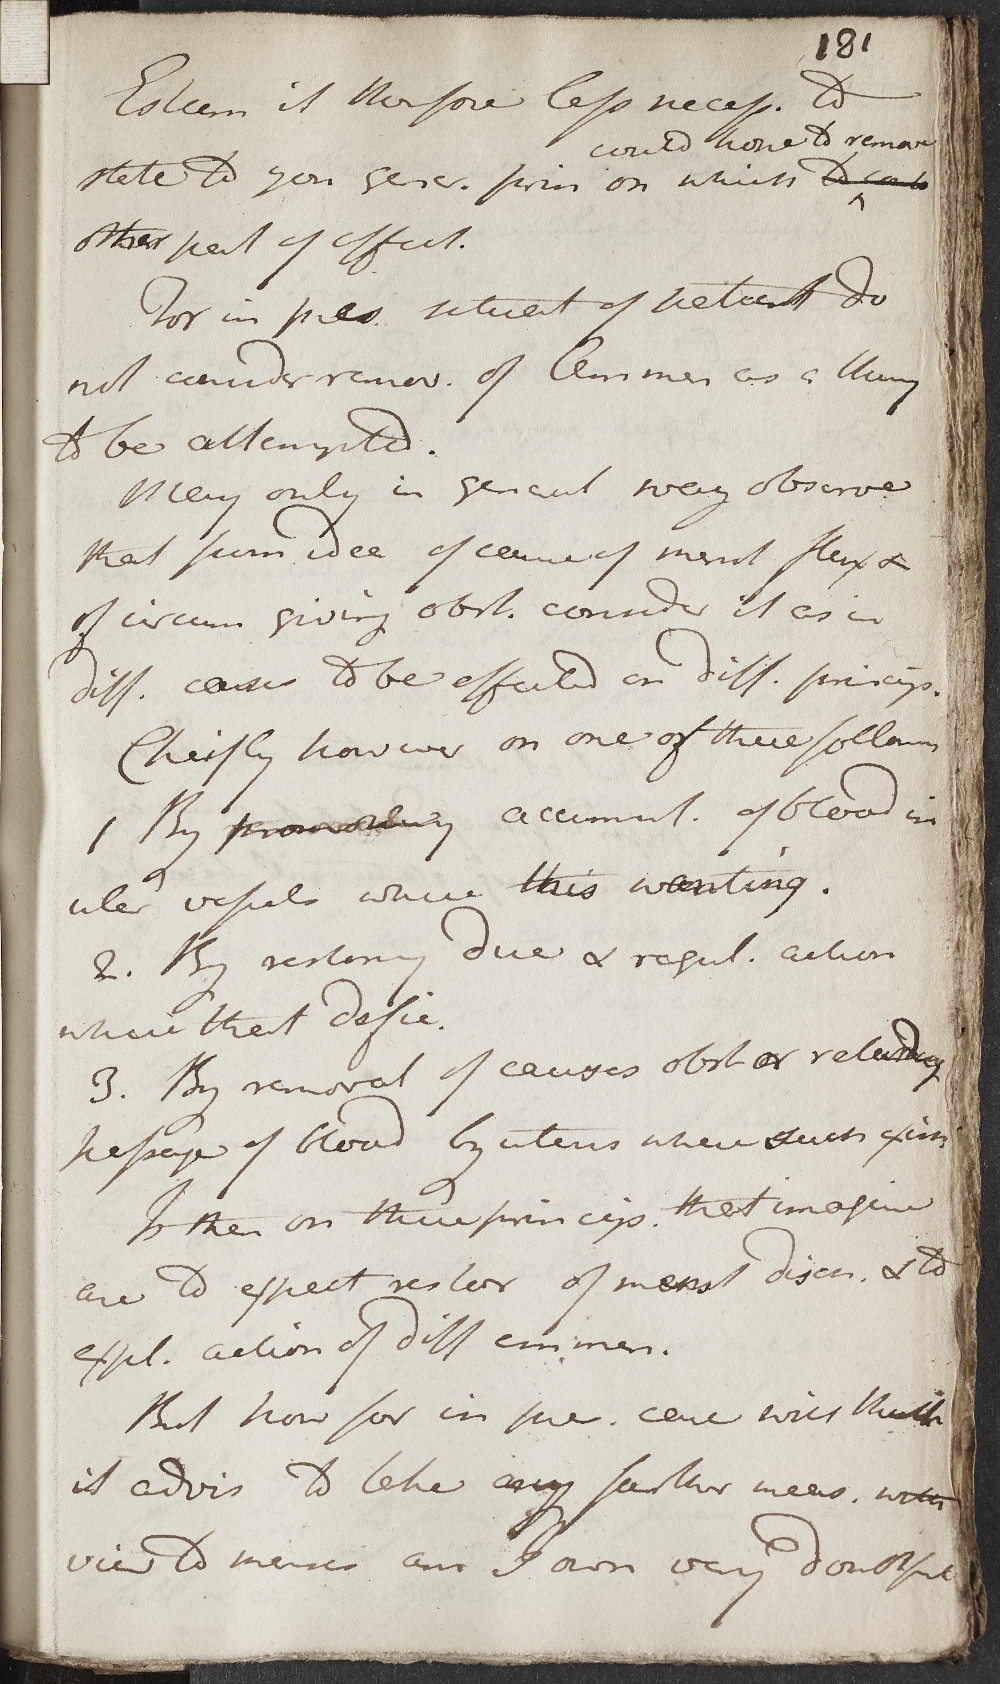 181
Esteem it therefore less necess. to
could hope to remove
state to you gener. prin on which to
other part of affect.
For in pres. situat of patient do
not consider remov. of Emmen as a thing
to be attempted.
May only in general way observe
that from idea of cause of menst flux &
of circum giving obst. consider it as in
diff. cases to be effected on diff. princip.
Cheifly however on one of three follow
1 By promoting accumul. of blood in
uter vessels where this wanting.
2. By restoring due & regul. action
where that defic.
3. By removal of causes obst or retarding
passage of blood by uterus where such exist
It then on these princip. that imagine
are to expect restor of menst disch. & to
expl. action of diff emmen.
But how far in pre. case will think
it advis to take any farther meas. with
view to menses am I own very doubtful